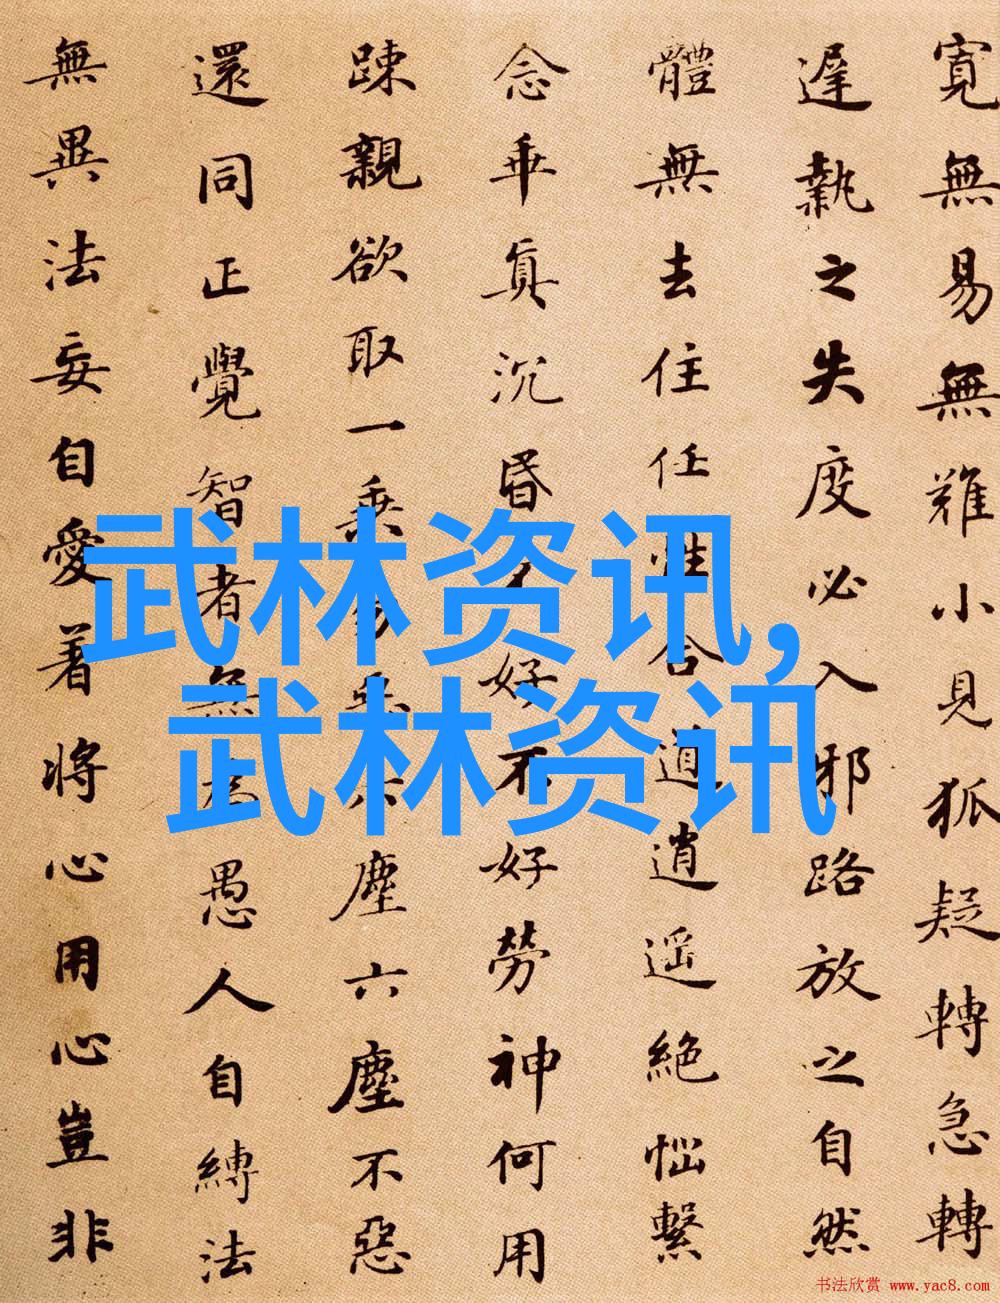 寬無易無難小見狐疑轉急轉
遲執之失度必入邪路放之自然
體無去住任性合道逍遥絶惱繫
念乖真沉昏不好不好勞神何用
踈親欲取一乘勿惡六塵六塵不惡
還同正覺智者無為愚人自縛法
無異法妄自愛著將心用心豈非
武林资讯,
武林资讯
书法欣赏 www.yac8.com